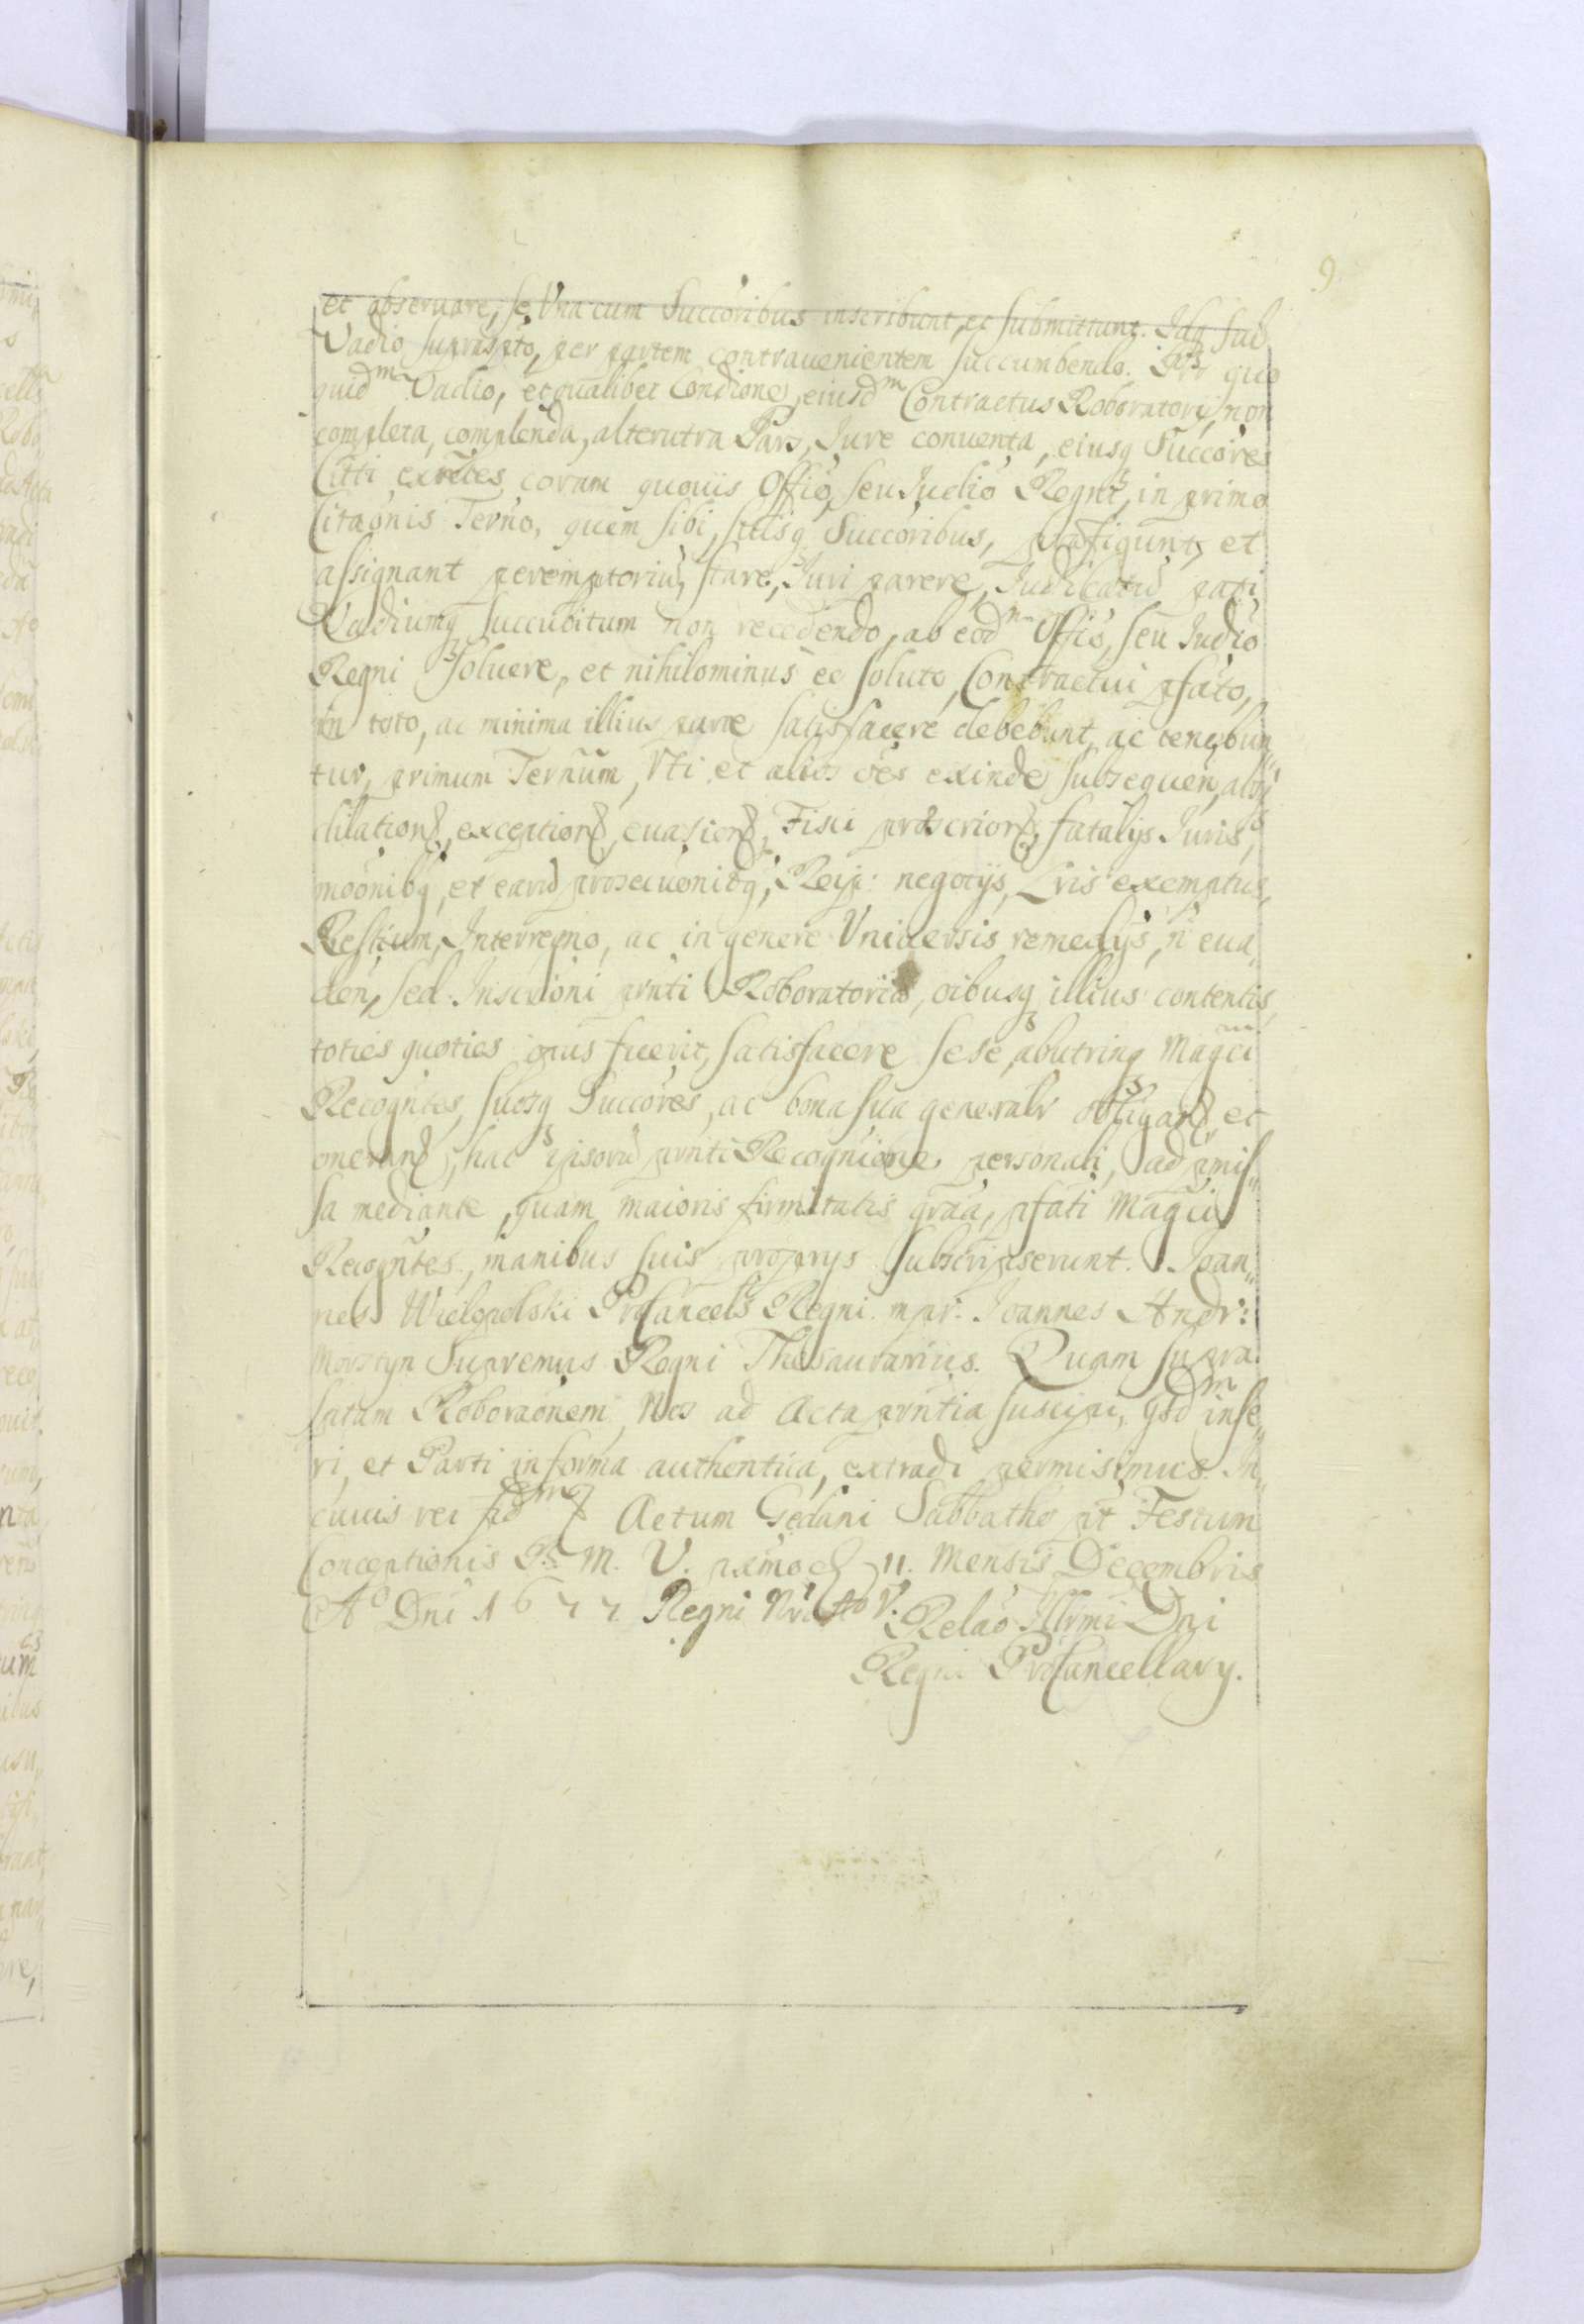 9
et obseruare, se Vna cum Succoribus inscribunt, et submittunt. Idq sub
Vadio suprascpto, per partem contrauenientem succumbendo. Pro quo
quidm Vadio, et qualibet Condione, eiusdm Contractus Roboratorij, non
completa, complenda, alterutra Pars, Jure conuenta, eiusq Succores
Citti exntes coram quouis Offio, seu Judio Regni, in primo
Citaonis Terno, quem sibi, suisq Succoribus, praefigunt, et
assignant peremptoriu, stare, Juri parere, Judicatu pati
Vadiumq succubitum non recedendo, ab eodm Offio, seu Judio
Regni soluere, et nihilominus eo soluto, Contractui pfato,
in toto, ac minima illius parte satisfacere debebunt, ac tenebun„
tur, primum Ternum, Vti et alios oes exinde subsequen,
dilation, exception, euasion, Fisci proscrion, fatalys Juris,
moonibq, et earu prosecuonibq, Reip: negotys, Lris exemptus,
Interregno, ac in genere Vniuersis remedys, n eua„
den, sed Inscrioni prnti Roboratoriae, oibusq illius contentis,
toties quoties opus fuerit, satisfacere sese, abutrinq Magci
Recogntes, suosq Succores, ac bona sua generalr obligand, et
onerand, hac ipsoru prnti Recognione personali, ad pmis„
sa mediante, quam maioris firmitatis graa, pfati Magci
Recogntes, manibus suis proprys subscripserunt. Joan„
nes Wielopolski ProCancels Regni mpr. Joannes Andr:
Morsztyn Supremus Regni Thesaurarius. Quam supra
fatam Roboraonem Nos ad Acta prntia suscipi, ibdm inse„
ri, et Parti in forma authentica, extradi permisimus. In„
cuius rei fidem Actum Gedani Sabbatho pt Festum
Conceptionis B. M. V. pximo d 11. Mensis Decembris
Ao Dni 1677 Regni Nri Ao V. Relao Illrmi Dni
Regni ProCancellary.